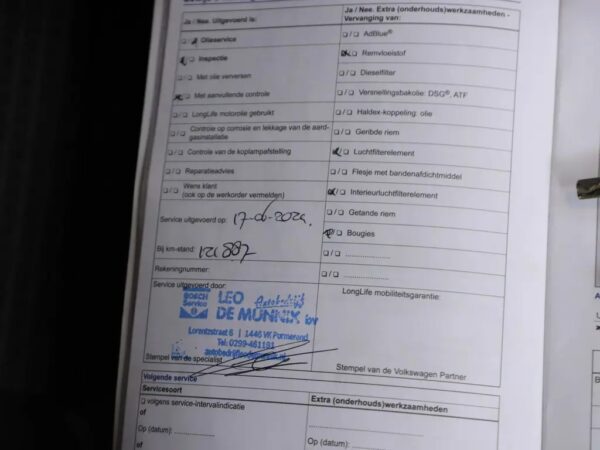 Ja / Nee. Uitgevoerd is:
□/□ Olieservice
□ Inspectie
□/□ Met olie verversen
□ Met aanvullende controle
□/□ LongLife motorolie gebruikt
□/□ Controle op corrosie en lekkage van de aard-
gasinstallatie
□/□ Controle van de koplampafstelling
□/□ Reparatieadvies
□/□ Wens klant
(ook op de werkorder vermelden)
Service uitgevoerd op: 17-06-2024.
Bij km-stand: 121887
Rekeningnummer:
Service uitgevoerd door:
BOSCH
Service
LEO Autobedrijf
DE MUNNIK bv
Lorentzstraat 6 | 1446 VK Purmerend
Tel: 0299-461191
Stempel van de specialist
Ja / Nee. Extra (onderhouds)werkzaamheden -
Vervanging van:
□/□ AdBlue®
□ Remvloeistof
□/□ Dieselfilter
□/□ Versnellingsbakolie: DSG®, ATF
□/□ Haldex-koppeling: olie
□/□ Geribde riem
□ Luchtfilterelement
□/□ Flesje met bandenafdichtmiddel
□ Interieurluchtfilterelement
□/□ Getande riem
□ Bougies
□/□ ....................
□/□ ....................
LongLife mobiliteitsgarantie:
Stempel van de Volkswagen Partner
Volgende service
Servicesoort
□ volgens service-intervalindicatie
of
Op (datum): ....................
of
Extra (onderhouds)werkzaamheden
....................
Op (datum): ....................